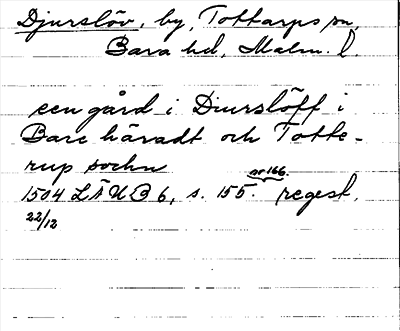 Djurslöv, by, Tottarps sn,
Bara hd, Malm. l.
een gård i Diurslöff i
Bare häradt och Totte-
rup sochn
nr 166.
1504 LÄUB 6, s. 155. regest.
22/12